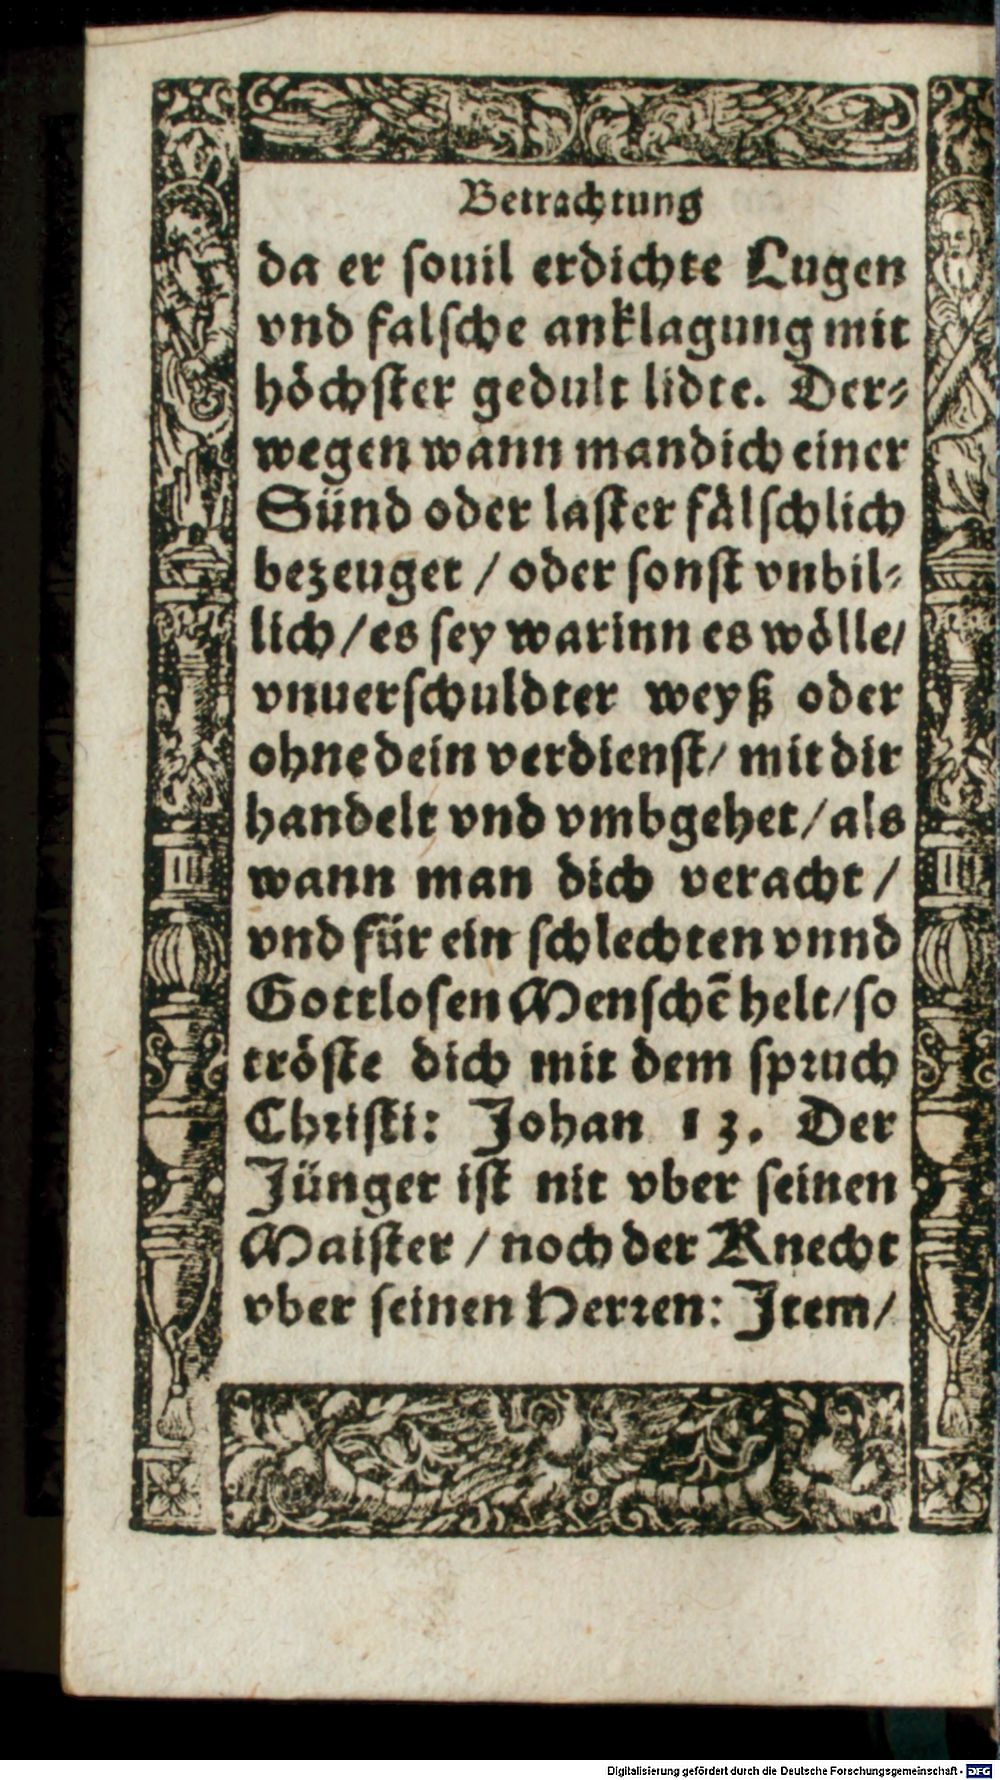 Betrachtung
da er souil erdichte Lugen
vnd falsche anklagung mit
höchster gedult lidte. Der-
wegen wann man dich einer
Sünd oder laster fälschlich
bezeuget / oder sonst vnbil-
lich / es sey warinn es wölle/
vnuerschuldter weyß oder
ohne dein verdienst/ mit dir
handelt vnd vmbgehet / als
wann man dich veracht /
vnd für ein schlechten vnnd
Gottlosen Menschẽ helt/ so
tröste dich mit dem spruch
Christi: Johan 13. Der
Jünger ist nit vber seinen
Maister / noch der Knecht
vber seinen Herren: Jtem/
Digitalisierung gefördert durch die Deutsche Forschungsgemeinschaft - DFG